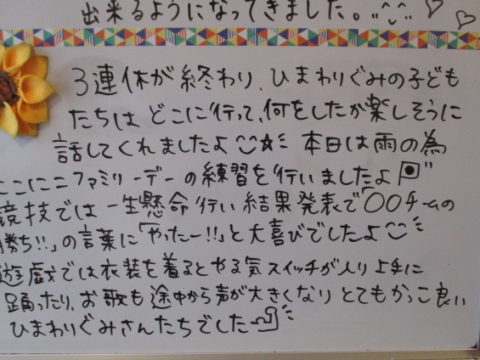 出来るようになってきました。
3連休が終わり、ひまわりぐみの子ども
たちは どこに行って、何をしたか楽しそうに
話してくれましたよ 本日は雨の為
ここにこファミリーデーの練習を行いましたよ
競技では一生懸命行い結果発表で"〇〇チームの
勝ち!!"の言葉に「やったー!!」と大喜びでしたよ
遊戯では衣装を着るとやる気スイッチが入り上手に
踊ったり、お歌も途中から声が大きくなりとてもかっこ良い
ひまわりぐみさんたちでした